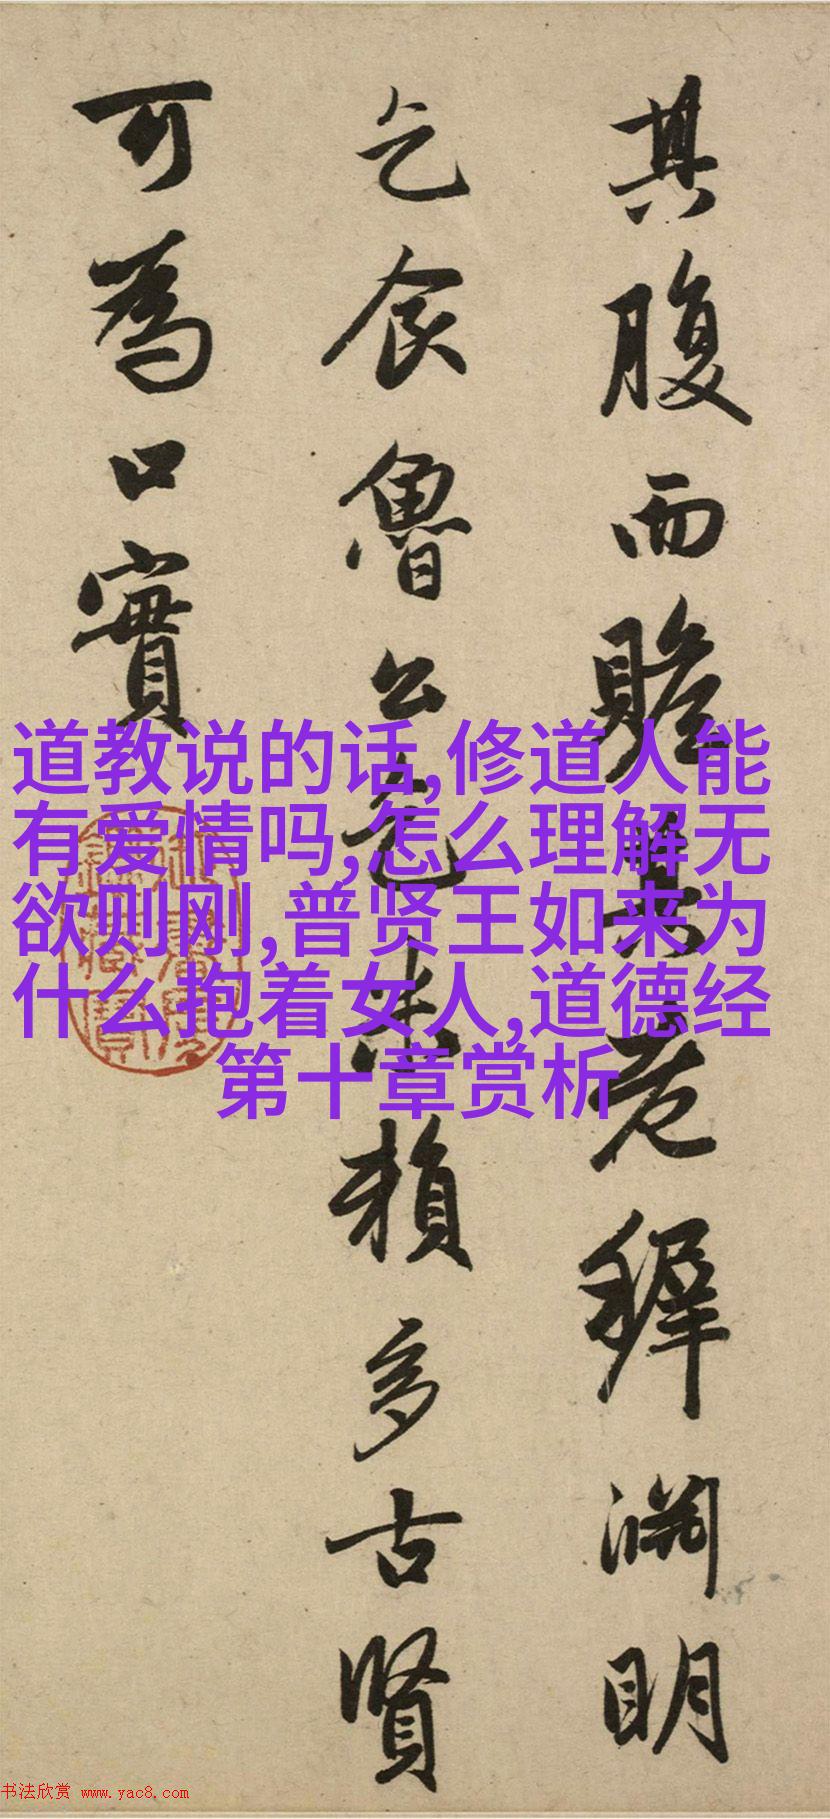 其腹而贍其老穉淵明
乞食魯公乞米賴多古賢
可為口實
道教说的话,修道人能
有爱情吗,怎么理解无
欲则刚,普贤王如来为
什么抱着女人,道德经
第十章赏析
书法欣赏 www.yac8.com